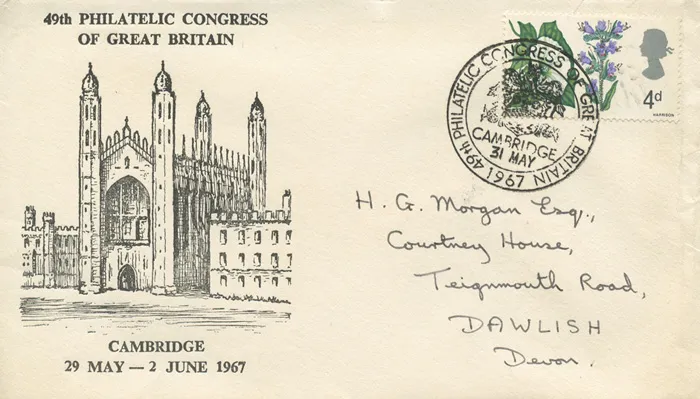 49th PHILATELIC CONGRESS
OF GREAT BRITAIN
CAMBRIDGE
29 MAY — 2 JUNE 1967
49th PHILATELIC CONGRESS OF GREAT BRITAIN
CAMBRIDGE
31 MAY
1967
4d
HARRISON
H. G. Morgan Esq.,
Courtney House,
Teignmouth Road,
DAWLISH
Devon.